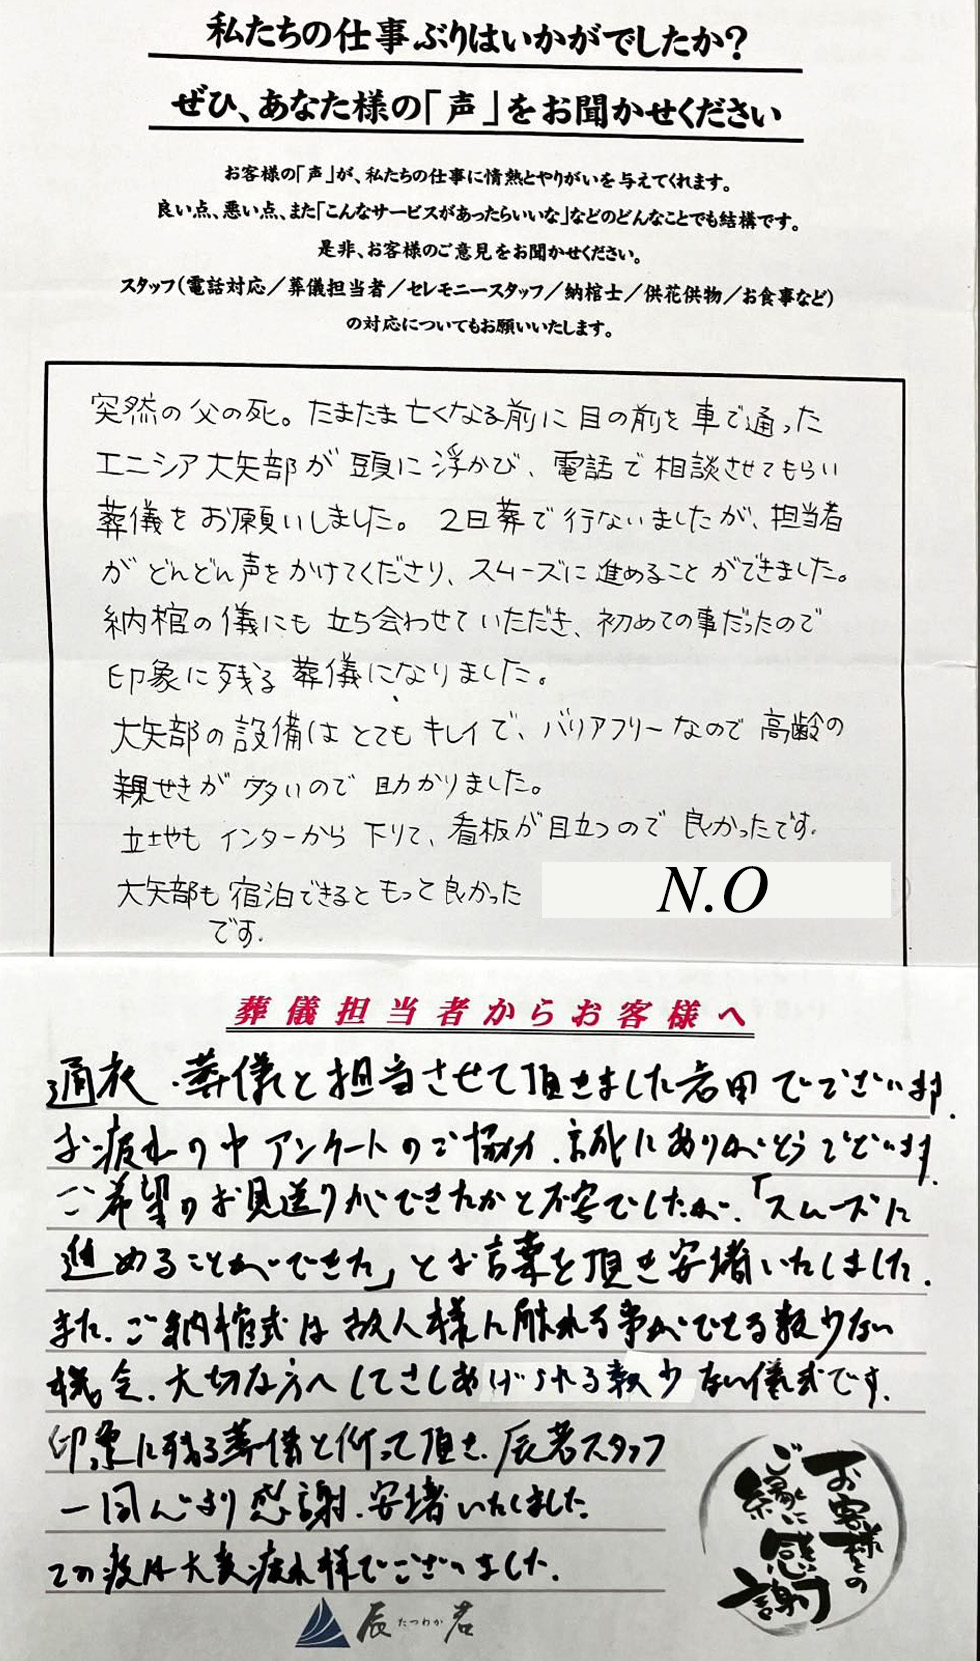 私たちの仕事ぶりはいかがでしたか？
ぜひ、あなた様の「声」をお聞かせください
お客様の「声」が、私たちの仕事に情熱とやりがいを与えてくれます。
良い点、悪い点、また「こんなサービスがあったらいいな」などのどんなことでも結構です。
是非、お客様のご意見をお聞かせください。
スタッフ（電話対応／葬儀担当者／セレモニースタッフ／納棺士／供花供物／お食事など）
の対応についてもお願いいたします。
突然の父の死。たまたま亡くなる前に目の前を車で通った
エニシア大矢部が頭に浮かび、電話で相談させてもらい
葬儀をお願いしました。2日葬で行ないましたが、担当者
がどんどん声をかけてくださり、スムーズに進めることができました。
納棺の儀にも立ち会わせていただき、初めての事だったので
印象に残る葬儀になりました。
大矢部の設備はとてもキレイで、バリアフリーなので高齢の
親せきが多いので助かりました。
立地もインターから下りて、看板が目立つので良かったです。
大矢部も宿泊できるともっと良かった
です。
N.O
葬儀担当者からお客様へ
通夜・葬儀と担当させて頂きました岩田でございます。
お疲れの中アンケートのご協力、誠にありがとうございます。
ご希望のお見送りができたかと不安でしたが、「スムーズに
進めることができた」とお言葉を頂き安堵いたしました。
また、ご納棺式は故人様に触れる事ができる数少ない
機会、大切な方へしてさしあげられる数少ない儀式です。
印象に残る葬儀と仰って頂き、辰若スタッフ
一同心より感謝、安堵いたしました。
この度は大変お疲れ様でございました。
お客様との
ご縁に
感謝
辰若
たつわか